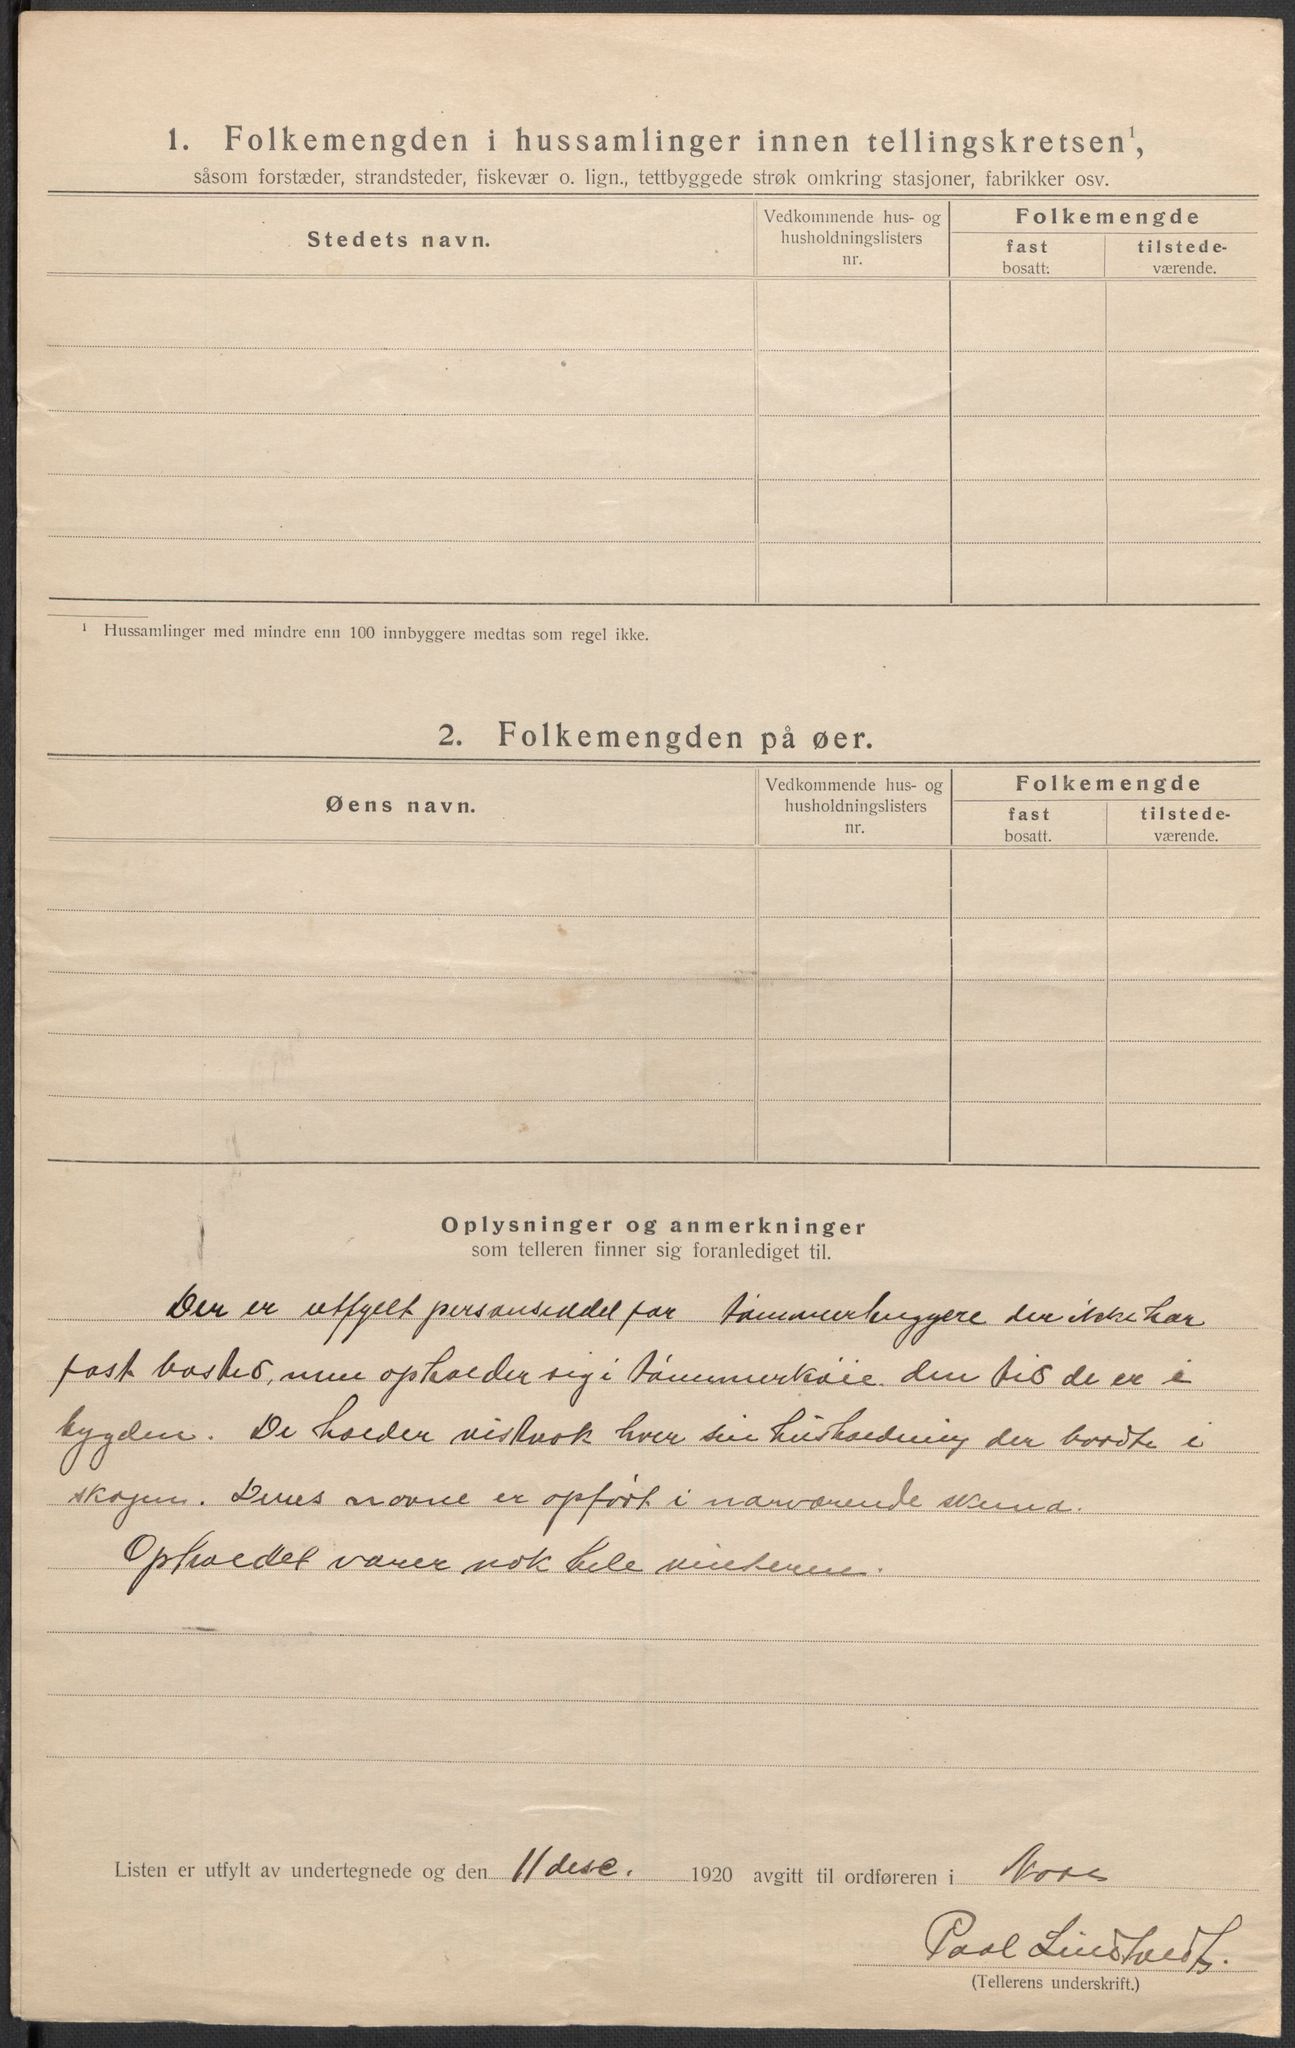 1. Folkemengden i hussamlinger innen tellingskretsen¹,
såsom forstæder, strandsteder, fiskevær o. lign., tettbyggede strøk omkring stasjoner, fabrikker osv.
Stedets navn.
Vedkommende hus- og
husholdningslisters
nr.
Folkemengde
fast
bosatt:
tilstede-
værende.
¹ Hussamlinger med mindre enn 100 innbyggere medtas som regel ikke.
2. Folkemengden på øer.
Øens navn.
Vedkommende hus- og
husholdningslisters
nr.
Folkemengde
fast
bosatt.
tilstede-
værende.
Oplysninger og anmerkninger
som telleren finner sig foranlediget til.
Der er utfylt personseddel for tømmerhuggere der ikke har
fast bosted, men opholder sig i tømmerkoie den tid de er i
bygden. De holder vistnok hver sin husholdning der borte i
skogen. Deres navne er opført i nærværende skema.
Opholdet varer nok hele vinteren.
Listen er utfylt av undertegnede og den 11 desc. 1920 avgitt til ordføreren i
Paal Lindtvedt.
(Tellerens underskrift.)